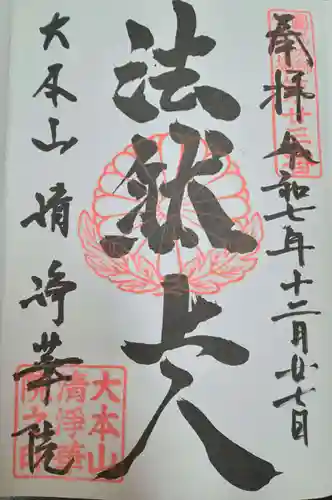 奉拝 令和七年十二月廿七日
法然上人
大本山 清浄華院
大本山
清浄華
院之印